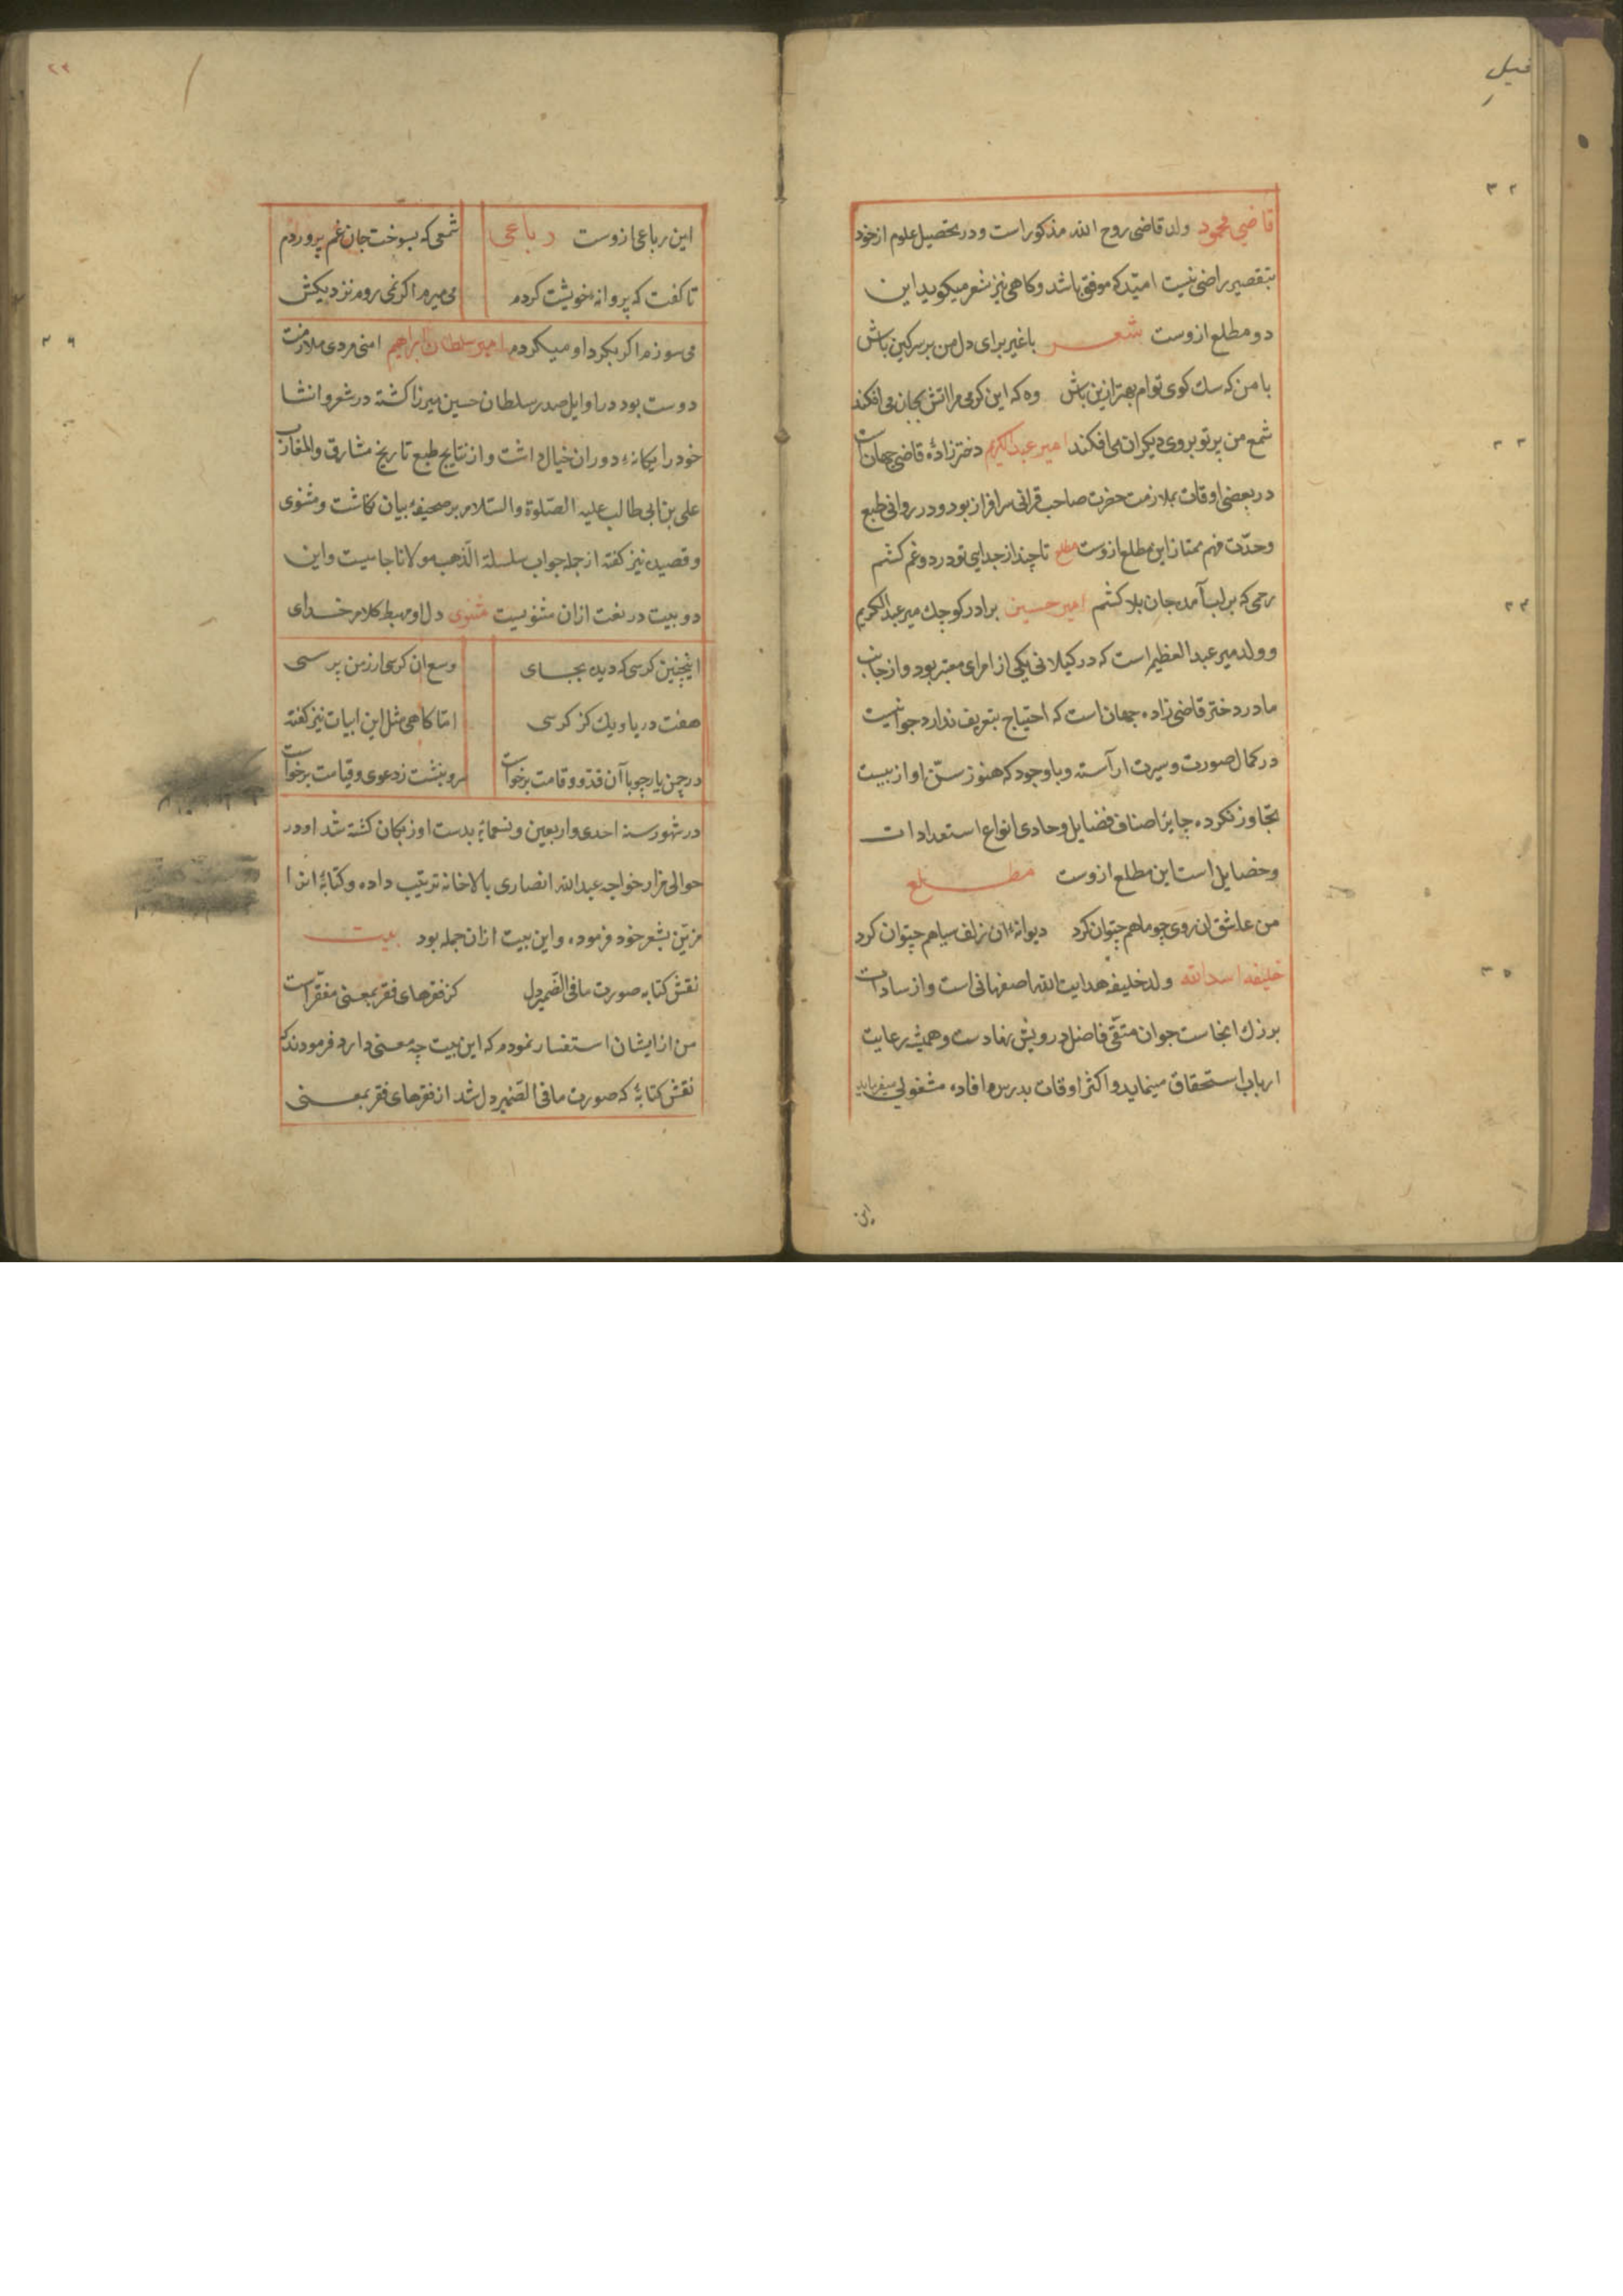 قاضی محمود ولد قاضی روح الله مذکور است و در تحصیل علوم از خود
بتقصیر راضی نیست امید که موفق باشد و کاهی نیز شعر میکوید این
دو مطلع ازوست شعر با غیر برای دل من بر سر کین باش
با من که سک کوی توام بهتر ازین باش وه که این کرمی مرا اتش بجان می افکند
شمع من پرتو بروی دیکران می افکند امیر عبدالکریم دختر زادهٔ قاضی جهان است
در بعضی اوقات بملازمت حضرت صاحب قرانی سرافراز بود و در روانی طبع
وحدّت فهم ممتاز این مطلع ازوست مطلع تا چند از جدایی تو درد و غم کشم
رحمی که بر لب آمد جان بلا کشم امیر حسین برادر کوچک میر عبدالکریم
و ولد میر عبد العظیم است که در کیلان یکی از امرای معتبر بود و از جانب
مادر دختر قاضی زاده جهان است که احتیاج بتعریف ندارد جوانیست
در کمال صورت و سیرت اراسته و با وجود که هنوز سنّ او از بیست
تجاوز نکرده جایز اصناف فضایل و حادی انواع استعدادات
و خصایل است این مطلع ازوست مطلع
من عاشق ان روی چو ماهم چتوان کرد دیوانهٔ ان زلف سیاهم چتوان کرد
خلیفه اسدالله ولد خلیفه هدایت الله اصفهانی است و از سادات
بزرک انجاست جوان متّقی فاضل درویش نهادست و همیشه رعایت
ارباب استحقاق مینماید و اکثر اوقات بدرس و افاده مشغولی میفرماید
این
۳۲
۳۳
۳۴
۳۵
این رباعی ازوست رباعی شمعی که بسوخت جان غم پروردم
تا کفت که پروانهٔ خویشت کردم می میرم اکر نمی روم نزدیکش
می سوزم اکر بکرد او میکردم امیر سلطان ابراهیم امنی مردی ملازمت
دوست بود در اوایل صدر سلطان حسین میرزا کشته در شعر و انشا
خود را یکانهٔ دوران خیال داشت و از نتایج طبع تاریخ مشارق والمغارب
علی بن ابی طالب علیه الصّلوة والسّلام بر صحیفهٔ بیان نکاشت و مثنوی
و قصیده نیز کفته از جمله جواب سلسلة الذّهب مولانا جامیست و این
دو بیت در نعت ازان مثنویست مثنوی دل او مهبط کلام خدای
اینچنین کرسی که دیده بجای وسع ان کرسی ار ز من پرسی
هفت دریا و یک کز کرسی امّا کاهی مثل این ابیات نیز کفته
در چمن یار چو با آن قدّ و قامت برخواست سرو بنشست ز دعوی و قیامت برخواست
در شهور سنه احدی و اربعین و تسعمایة بدست اوزبکان کشته شد او در
حوالی مزار خواجه عبدالله انصاری بالاخانه ترتیب داده و کتابهٔ انرا
مزیّن بشعر خود فرموده و این بیت ازان جمله بود بیت
نقش کتابه صورت ما فی الضّمیر دل کز فقرهای فقر بمعنی مفقّر است
من از ایشان استفسار نمودم که این بیت چه معنی دارد فرمودند که
نقش کتابهٔ که صورت ما فی الضّمیر دل شد از فقرهای فقر بمعنی
۳۶